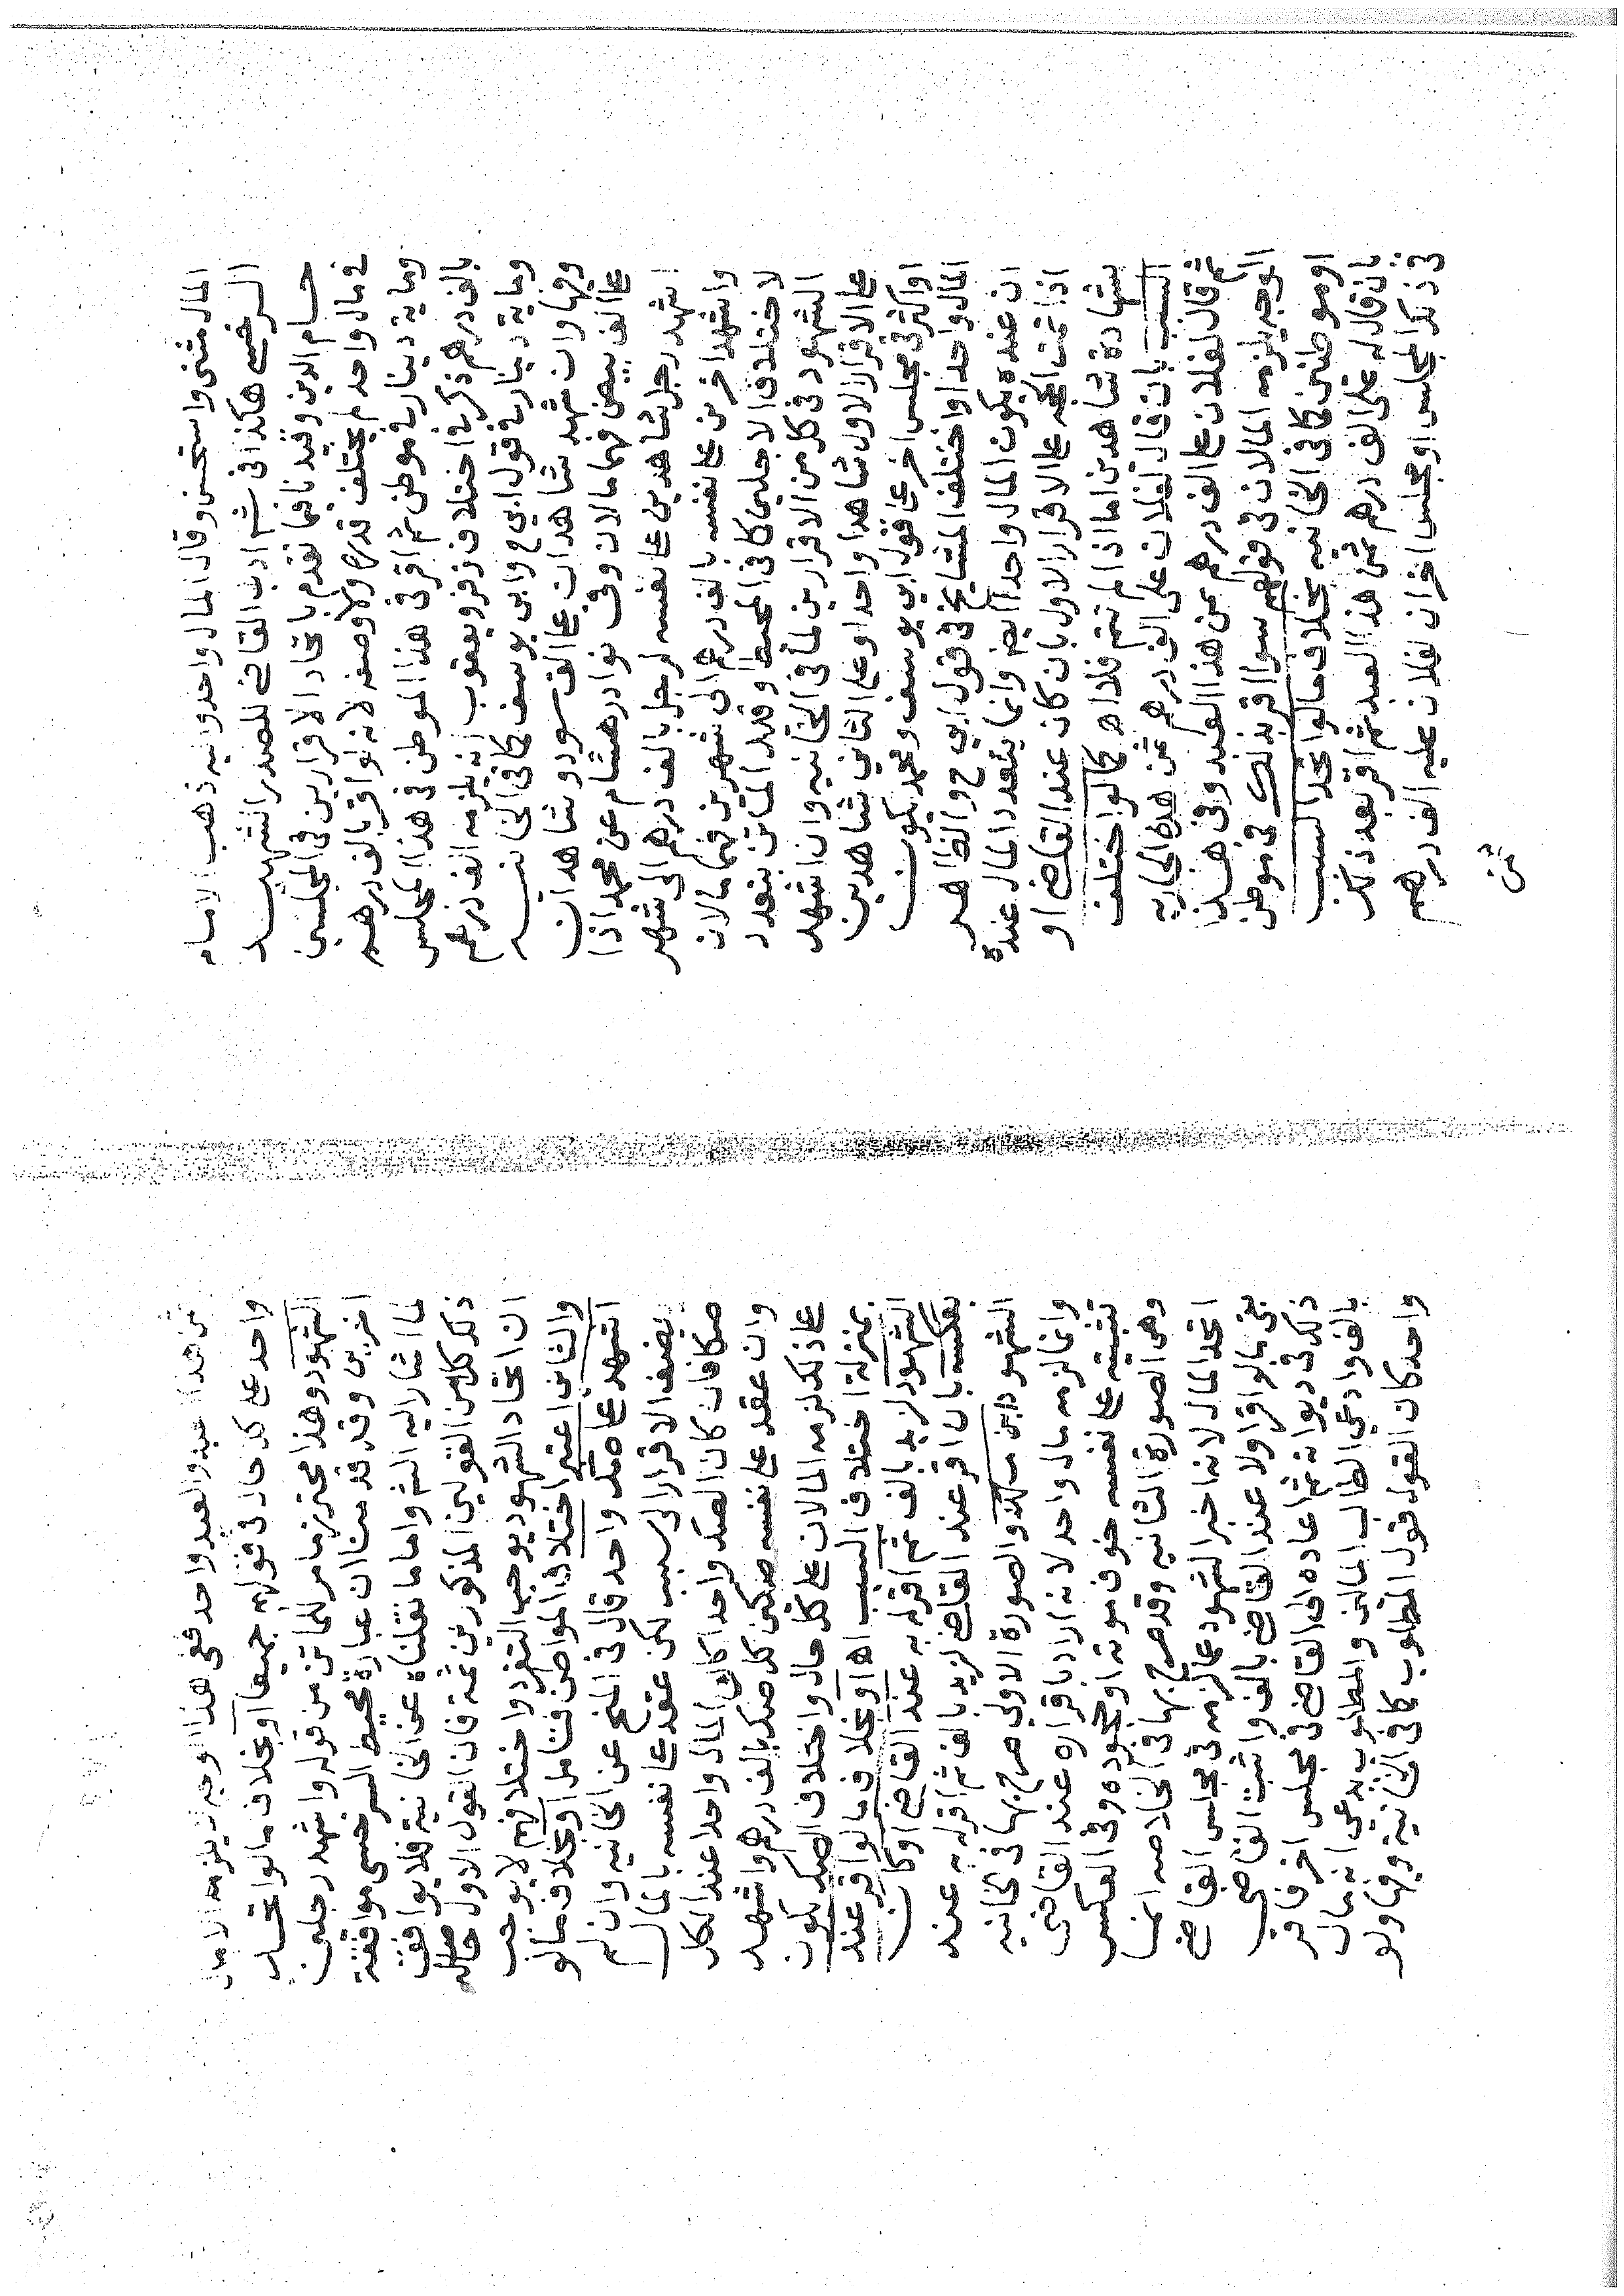 المال مثنى واستحسن وقال المال واحد واليه ذهب الامام
السرخسي هكذا في شرح ادب القاضي للصدر الشهيد
حسام الدين وقيدنا فيما تقدم باتحاد الاقرارين في المجلسين
في مال واحد لم يختلف قدره ولا وصفه لانه لو اقر بالف درهم
وماية دينار في موطن ثم اقر في هذا الموطن في هذا المجلس
بالف درهم ذكر في اختلاف زفر ويعقوب انه يلزمه الف درهم
وماية دينار في قول ابي ح وابي يوسف كما في الخانيه
وفيها وان شهد شاهدان عا الف سود وشاهدان
عا الف بيض فهما مالان وفي نوادر هشام عن محمد اذا
اشهد رجل شاهدين عا نفسه لرجل بالف درهم الى شهر
واشهد اخرين عا نفسه بالف درهم الى شهرين فهما مالان
لاختلاف الاجلين كما في المحيط وقيد الماتن بتعدد
الشهود في كل من الاقرارين لما في الخانيه وان اشهد
عا الاقرار الاول شاهدا واحدا وعلى الثاني شاهدين
او اكثر في مجلس اخر عا قول ابي يوسف ومحمد يكون
المال واحدا واختلف المشايخ في قول ابي ح والظاهر
ان عنده يكون المال واحدا ايض وانما يتعدد المال عنده
اذا تمت الحجه عا الاقرار الاول بان كان عند القاضي او
بشهادة شاهدين اما اذا لم تتم فلا اه كما لو اختلف
السبب بان قال لفلان على الف درهم ثمن هذه الجاريه
ثم قال لفلان عا الف درهم ثمن هذا العبد وفي هذا
الوجه يلزمه المالان في قولهم سوا اقر بذلك في موطن
او موطنين كما في الخانيه بخلاف ما لو اتحد السبب
بان قال له على الف درهم ثمن هذا العبد ثم اقر بعد ذلك
في ذلك المجلس او مجلس اخر ان لفلان عليه الف درهم
ثمن
ثمن هذا العبد والعبد واحد ففي هذا الوجه لا يلزمه الا مال
واحد على كل حال في قولهم جميعا او بخلاف ما لو اتحد
الشهود وهذا محترز ما مر للماتن من قوله واشهد رجلين
اخرين وقد قدمنا ان عبارة محيط السرخسي موافقة
لما اشار اليه الشر واما ما نقلناه عن الخانية فلا يوافق
ذلك كلا من القولين المذكورين ثمة فان القول الاول حاصله
ان اتحاد الشهود يوجب التعدد واختلافهم لا يوجب
والثاني اعتبر اختلاف المواطن فتامل او بخلاف ما لو
اشهد عا صك واحد قال في المنح عن الخانيه وان لم
يضف الاقرار الى سبب لكن عقد عا نفسه بالمال
صكا فان كان الصك واحدا كان المال واحدا عند الكل
وان عقد على نفسه صكين كل صك بالف درهم واشهد
عا ذلك لزمه المالان على كل حال واختلاف الصك يكون
بمنزلة اختلاف السبب اه او بخلاف ما لو اقر عند
الشهود لزيد بالف ثم اقر له به عند القاضي او كان
بعكسه بان اقر عند القاضي لزيد بالف ثم اقر له به عند
الشهود ابن ملك والصورة الاولى صرح بها في الخانيه
وانما لزمه مال واحد لانه اراد باقراره عند القاضي
تثبيته عا نفسه خوف موته او جحوده وفي العكس
وهي الصورة الثانيه وقد صرح بها في الخلاصه انما
اتحد المال لانه اخبر الشهود بما لزمه في مجلس القاضي
بقي ما لو اقر اولا عند القاضي بالف واثبت القاضي
ذلك في ديوانه ثم اعاده الى القاضي في مجلس اخر فاقر
بالف وادعى الطالب المالين والمطلوب يدعي انه مال
واحد كان القول قول المطلوب كما في الخانية وفيها ولو